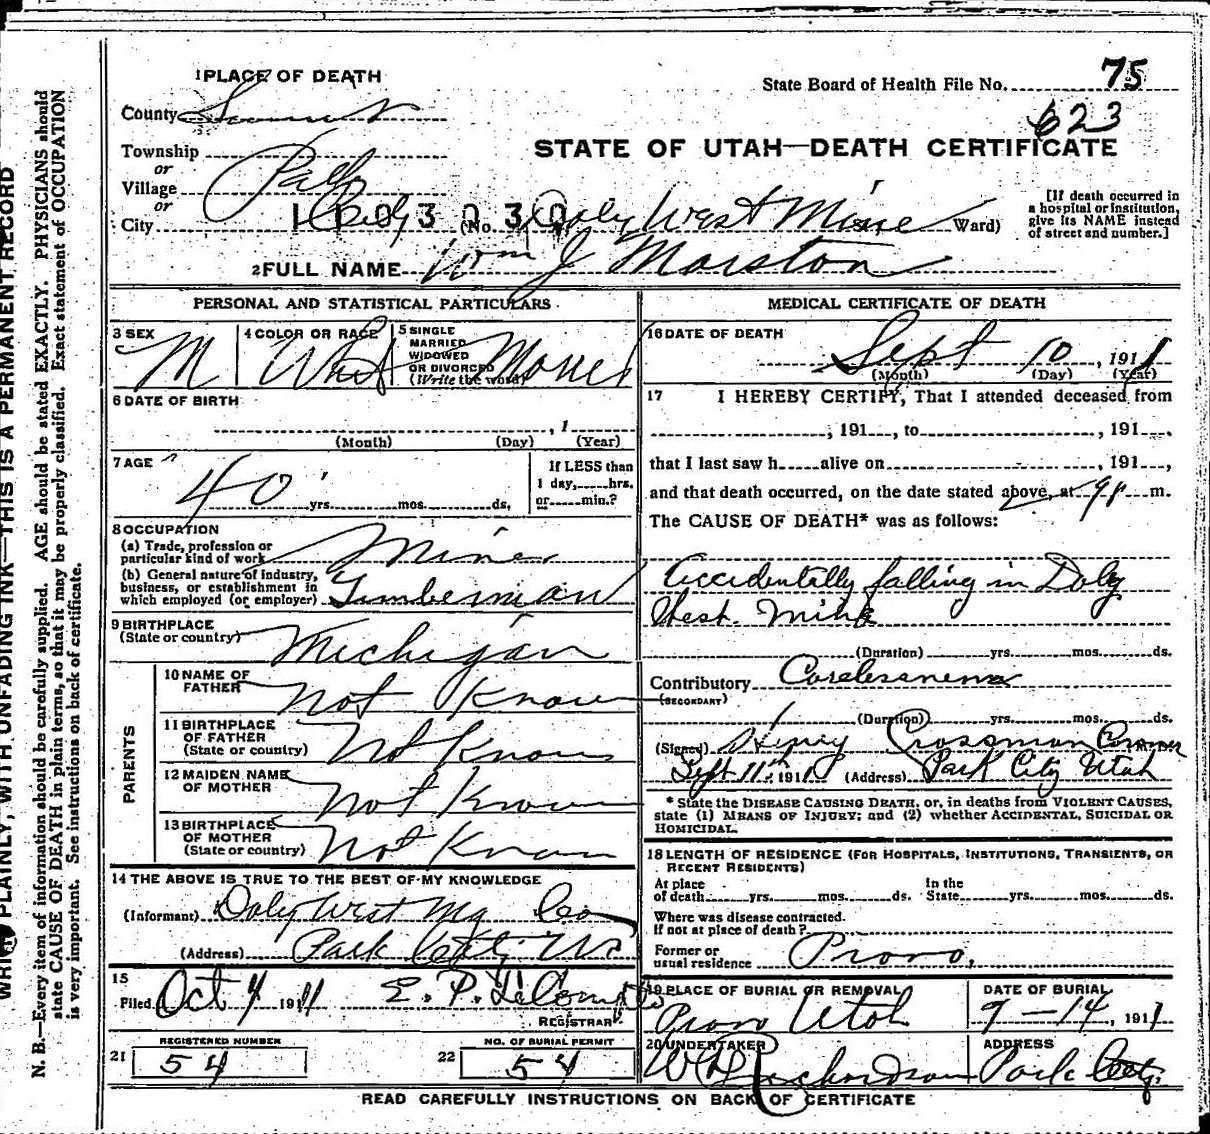 1 PLACE OF DEATH
State Board of Health File No. 75
County Summit
623
STATE OF UTAH—DEATH CERTIFICATE
Township
or
Village Park
or
City City (No. Daly West Mine Ward)
1103030
[If death occurred in
a hospital or institution,
give its NAME instead
of street and number.]
2 FULL NAME Wm J Marston
PERSONAL AND STATISTICAL PARTICULARS
3 SEX M
4 COLOR OR RACE White
5 SINGLE
MARRIED
WIDOWED
OR DIVORCED
(Write the word)
6 DATE OF BIRTH
, 1
(Month) (Day) (Year)
7 AGE
40 yrs. mos. ds.
If LESS than
1 day, hrs.
or min.?
8 OCCUPATION
(a) Trade, profession or
particular kind of work Miner
(b) General nature of industry,
business, or establishment in
which employed (or employer) Timberman
9 BIRTHPLACE
(State or country) Michigan
PARENTS
10 NAME OF
FATHER Not Know
11 BIRTHPLACE
OF FATHER
(State or country) Not Know
12 MAIDEN NAME
OF MOTHER Not Know
13 BIRTHPLACE
OF MOTHER
(State or country) Not Know
14 THE ABOVE IS TRUE TO THE BEST OF MY KNOWLEDGE
(Informant) Daly West Mg Co
(Address) Park City Ut
15
Filed Oct 4 1911 E. P. LeCompte
REGISTRAR
21 REGISTERED NUMBER
54
22 NO. OF BURIAL PERMIT
54
MEDICAL CERTIFICATE OF DEATH
16 DATE OF DEATH
Sept 10, 1911
(Month) (Day) (Year)
17 I HEREBY CERTIFY, That I attended deceased from
, 191 , to , 191 ,
that I last saw h alive on , 191 ,
and that death occurred, on the date stated above, at 9P m.
The CAUSE OF DEATH* was as follows:
Accidentally falling in Daly
West. Mine
(Duration) yrs. mos. ds.
Contributory Carelessness
(SECONDARY)
(Duration) yrs. mos. ds.
(Signed) Henry Crossman Coroner
Sept 11th, 1911 (Address) Park City Utah
* State the DISEASE CAUSING DEATH, or, in deaths from VIOLENT CAUSES,
state (1) MEANS OF INJURY; and (2) whether ACCIDENTAL, SUICIDAL OR
HOMICIDAL.
18 LENGTH OF RESIDENCE (FOR HOSPITALS, INSTITUTIONS, TRANSIENTS, OR
RECENT RESIDENTS)
At place
of death yrs. mos. ds.
In the
State yrs. mos. ds.
Where was disease contracted.
If not at place of death?
Former or
usual residence Provo,
19 PLACE OF BURIAL OR REMOVAL
Provo Utah
DATE OF BURIAL
9-14, 1911
20 UNDERTAKER
Richardson
ADDRESS
Park City
READ CAREFULLY INSTRUCTIONS ON BACK OF CERTIFICATE
PLAINLY, WITH UNFADING INK—THIS IS A PERMANENT RECORD
N. B.—Every item of information should be carefully supplied. AGE should be stated EXACTLY. PHYSICIANS should
state CAUSE OF DEATH in plain terms, so that it may be properly classified. Exact statement of OCCUPATION
is very important. See instructions on back of certificate.